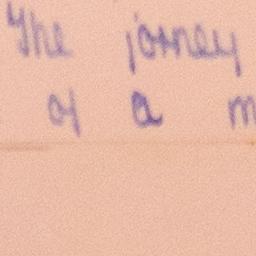 The jorney
of a m